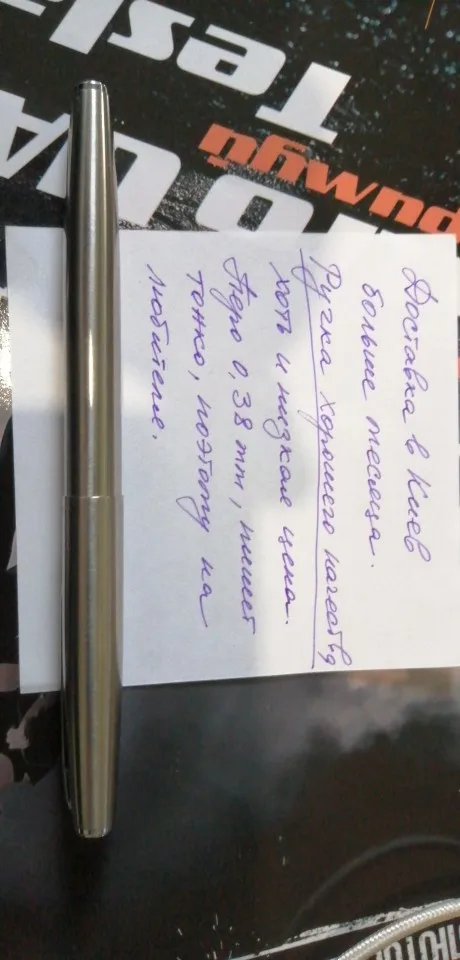 Доставка в Киев
больше месяца.
Ручка хорошего качества
хоть и низкая цена.
Перо 0,38 mm, пишет
тонко, поэтому на
любителя.
Tesla